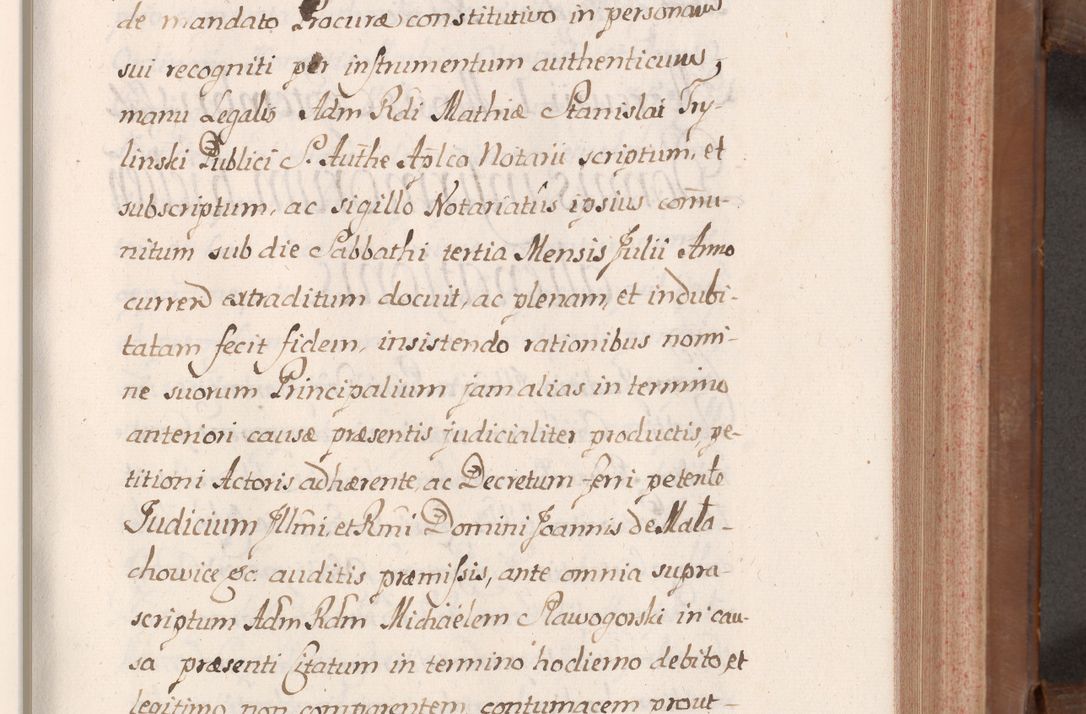 de mandato Procuræ constitutivo in personam
sui recogniti per instrumentum authenticum,
manu Legalis Adm Rdi Mathiæ Stanislai Try-
linski Publici S. Authe Aplca Notarii scriptum, et
subscriptum, ac sigillo Notariatûs ipsius com̄u-
nitum sub die Sabbathi tertia Mensis Julii Anno
curren extraditum docuit, ac plenam, et indubi-
tatam fecit fidem, insistendo rationibus nomi-
ne suorum Principalium jam alias in termino
anteriori causæ præsentis judicialiter productis, pe-
titioni Actoris adhærente, ac Decretum ferri petente
Judicium Illm̄i, et Rm̄i Domini Joannis de Mała-
chowice &c. auditis præmissis, ante omnia supra-
scriptum Adm Rdm Michaélem Sławogorski in cau-
sa præsenti Citatum in termino hodierno debito, et
legitimo non comparentem contumacem prout-